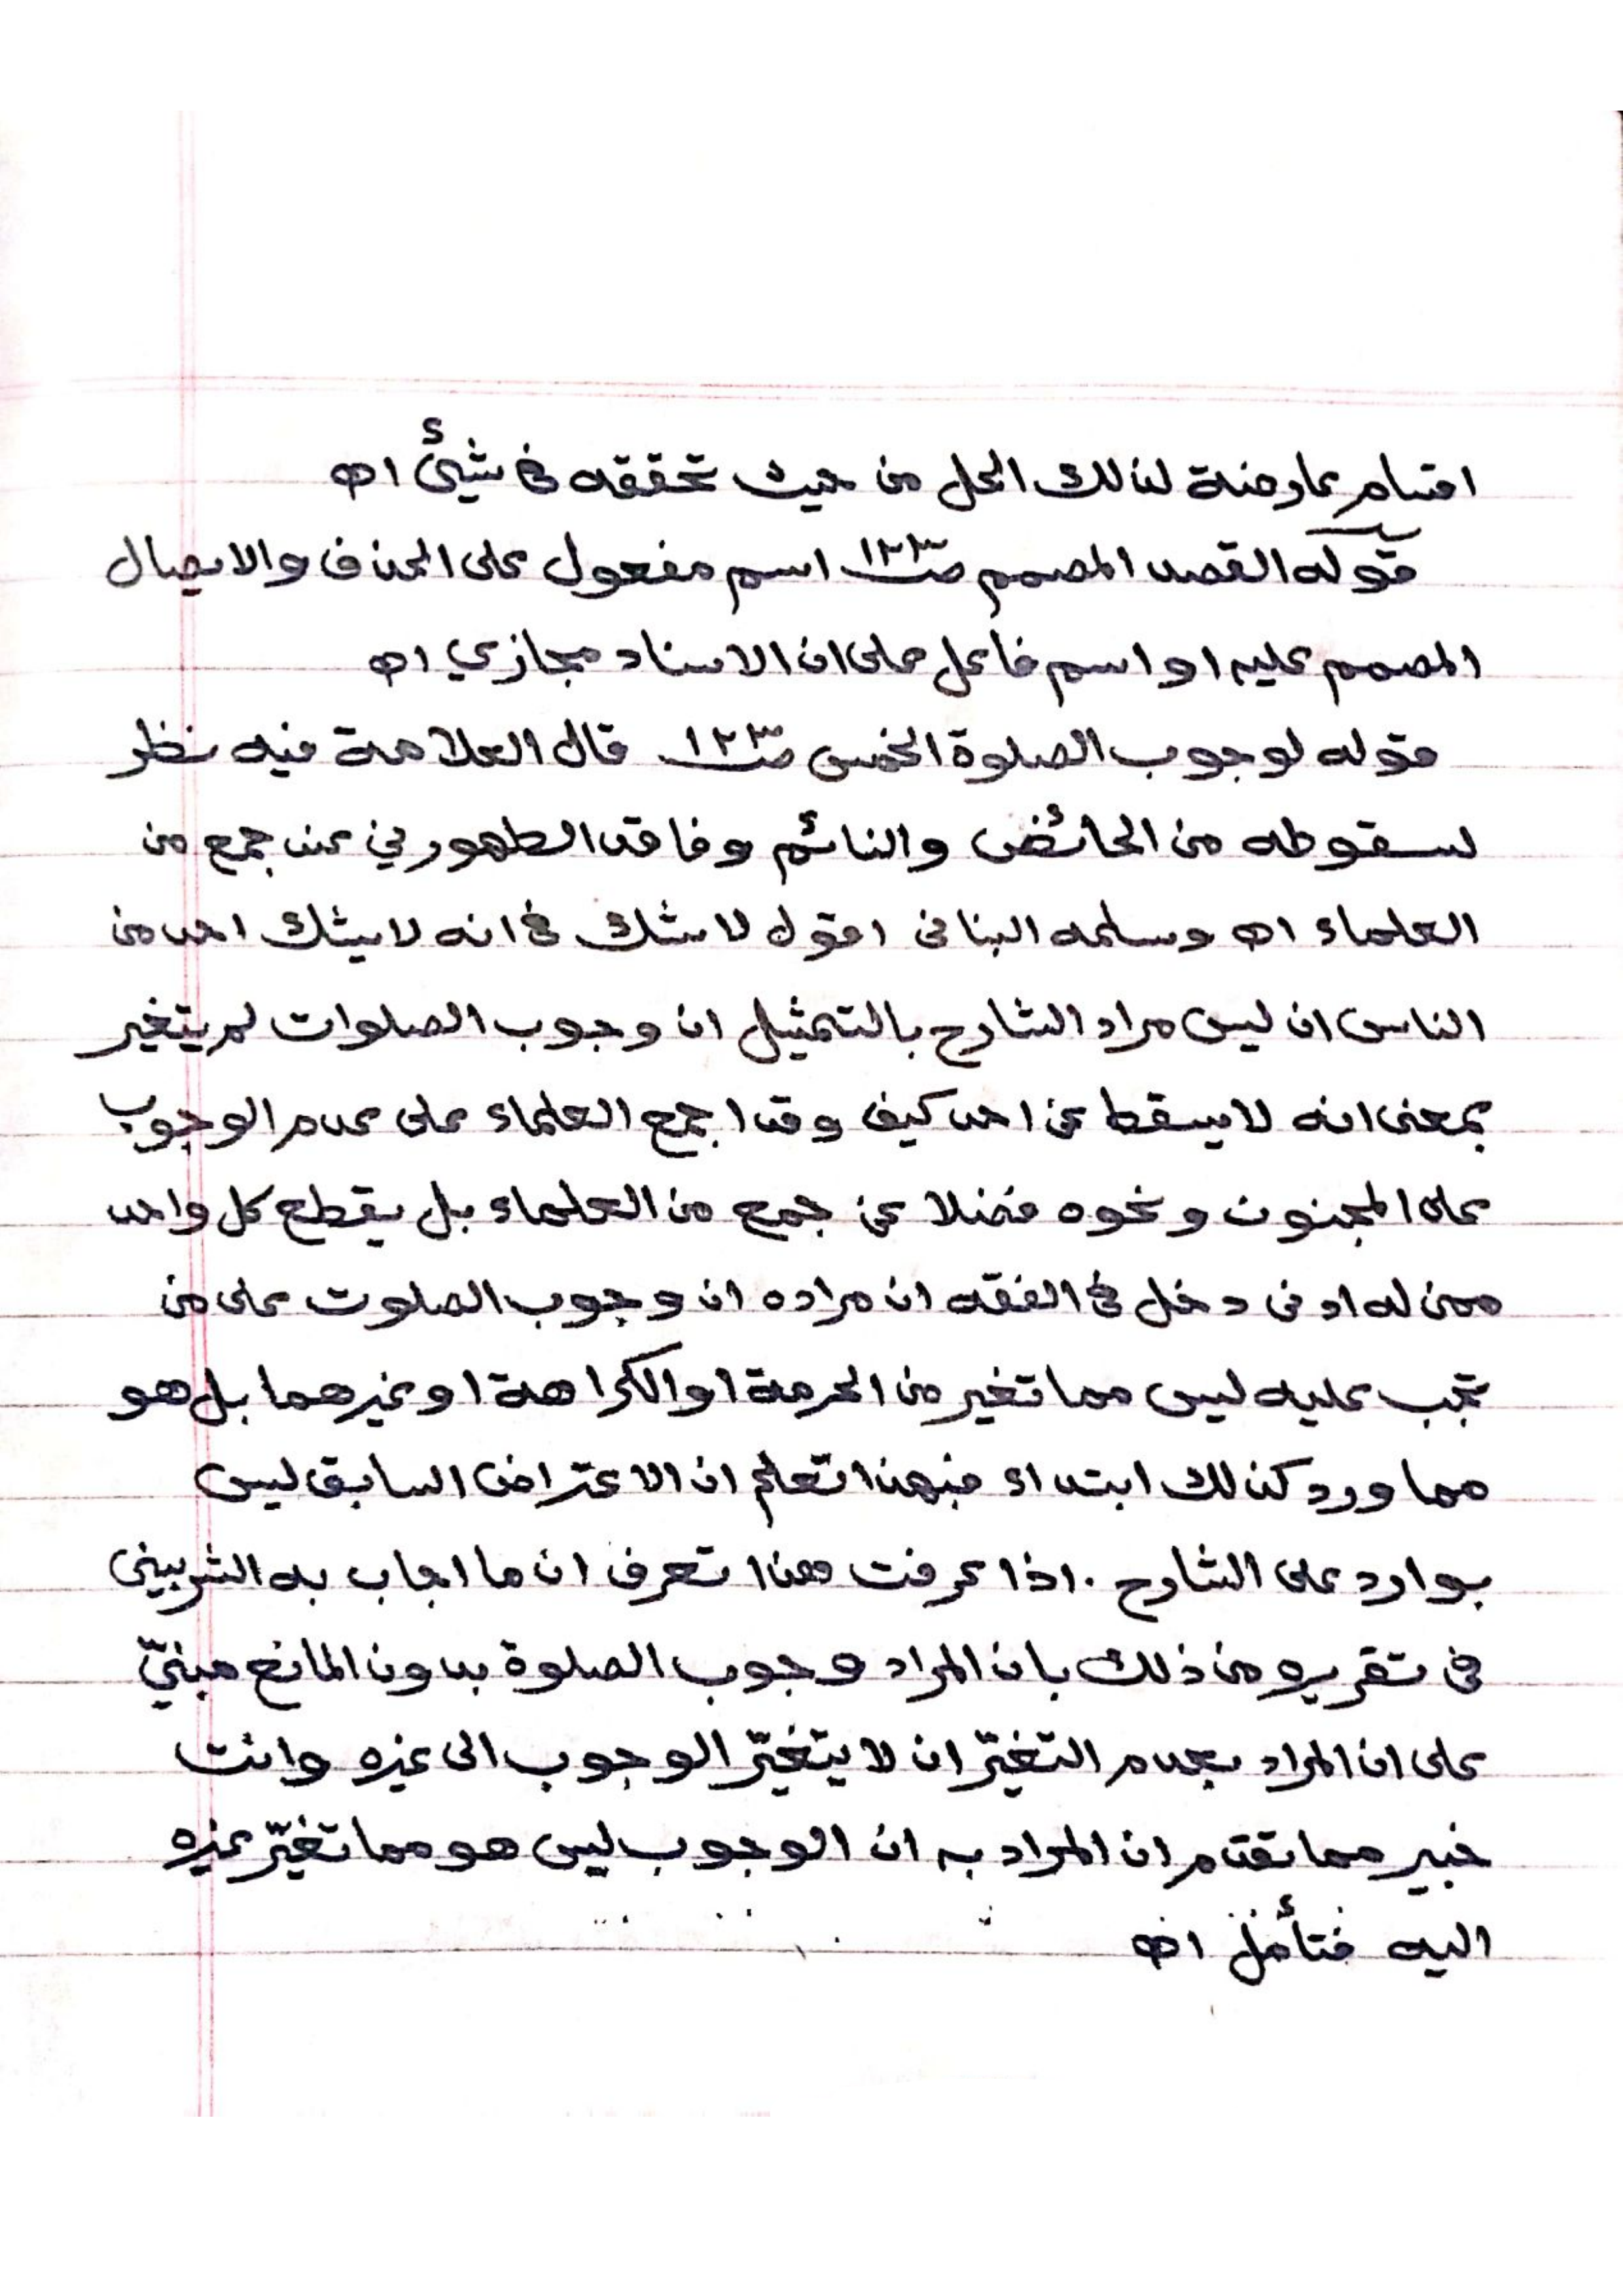 اقسام عارضة لذلك الحل من حيث تحققه في شيئ اه
قوله القصد المصمم صـ١٢٣ اسم مفعول على الحذف والايصال
المصمم عليه او اسم فاعل على ان الاسناد مجازي اه
قوله لوجوب الصلوة الخمس صـ١٢٣ قال العلامة فيه نظر
لسقوطه من الحائض والنائم وفاقد الطهورين عند جمع من
العلماء اه وسلمه البناني اقول لا شك في انه لا يشك احد من
الناس ان ليس مراد الشارح بالتمثيل ان وجوب الصلوات لم يتغير
بمعنى انه لا يسقط عن احد كيف وقد اجمع العلماء على عدم الوجوب
على المجنون ونحوه فضلا عن جمع من العلماء بل يقطع كل واحد
ممن له ادنى دخل في الفقه ان مراده ان وجوب الصلوت على من
تجب عليه ليس مما تغير من الحرمة او الكراهة او غيرهما بل هو
مما ورد كذلك ابتداء فبهذا تعلم ان الاعتراض السابق ليس
بوارد على الشارح . اذا عرفت هذا تعرف ان ما اجاب به الشربيني
في تقريره من ذلك بان المراد وجوب الصلوة بدون المانع مبنيّ
على ان المراد بعدم التغيّر ان لا يتغيّر الوجوب الى غيره وانت
خبير مما تقدم ان المراد به ان الوجوب ليس هو مما تغيّر غيره
اليه فتأمل اه